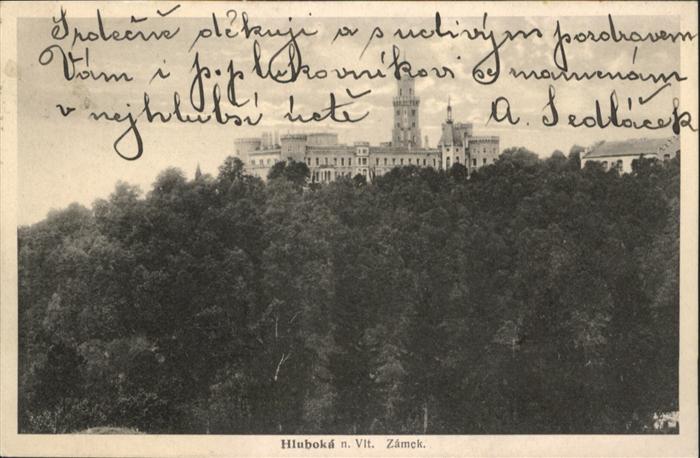 Srdečně děkuji a s uctivým pozdravem
Vám i p. plukovníkovi se
v nejhlubší úctě A. Sedláček
Hluboká n. Vlt. Zámek.